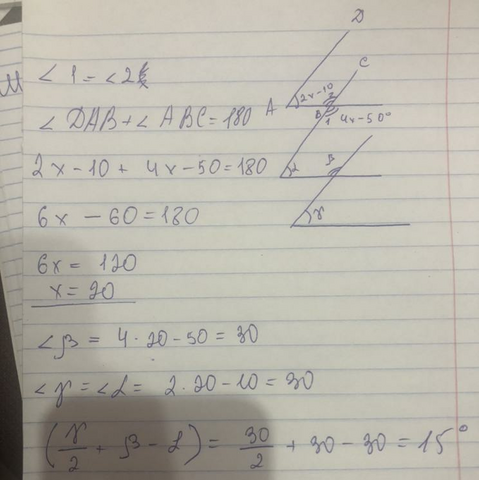 ∠ 1 = ∠ 2
∠ DAB + ∠ ABC = 180
2x - 10 + 4x - 50 = 180
6x - 60 = 180
6x = 120
x = 20
∠β = 4 · 20 - 50 = 30
∠γ = ∠L = 2 · 20 - 10 = 30
(γ/2 + β - L) = 30/2 + 30 - 30 = 15°
D
C
A
2x-10
2
B
1
4x-50°
β
2
γ